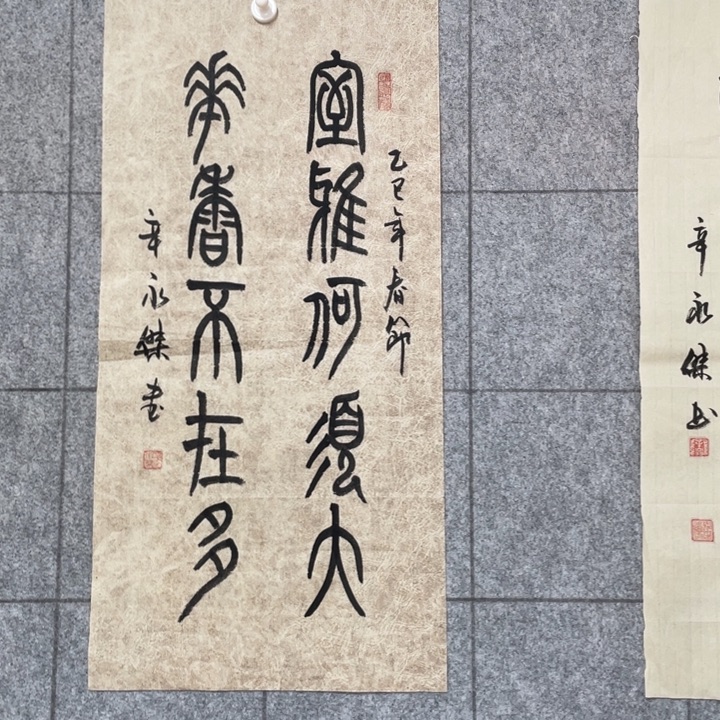 乙巳年春節
室雅何須大
華香不在多
辛永傑書
辛永傑书